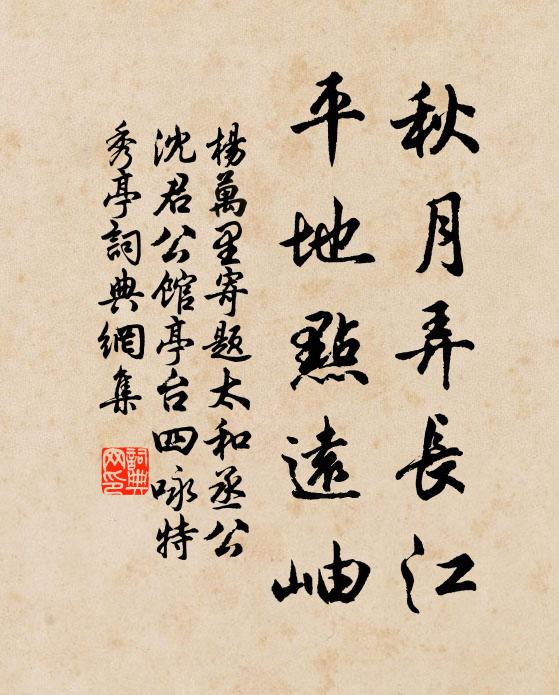 秋月弄長江
平地點遠岫
楊萬里寄題太和丞公
沈君公館亭台四咏特
秀亭詞典網集
詞典网印